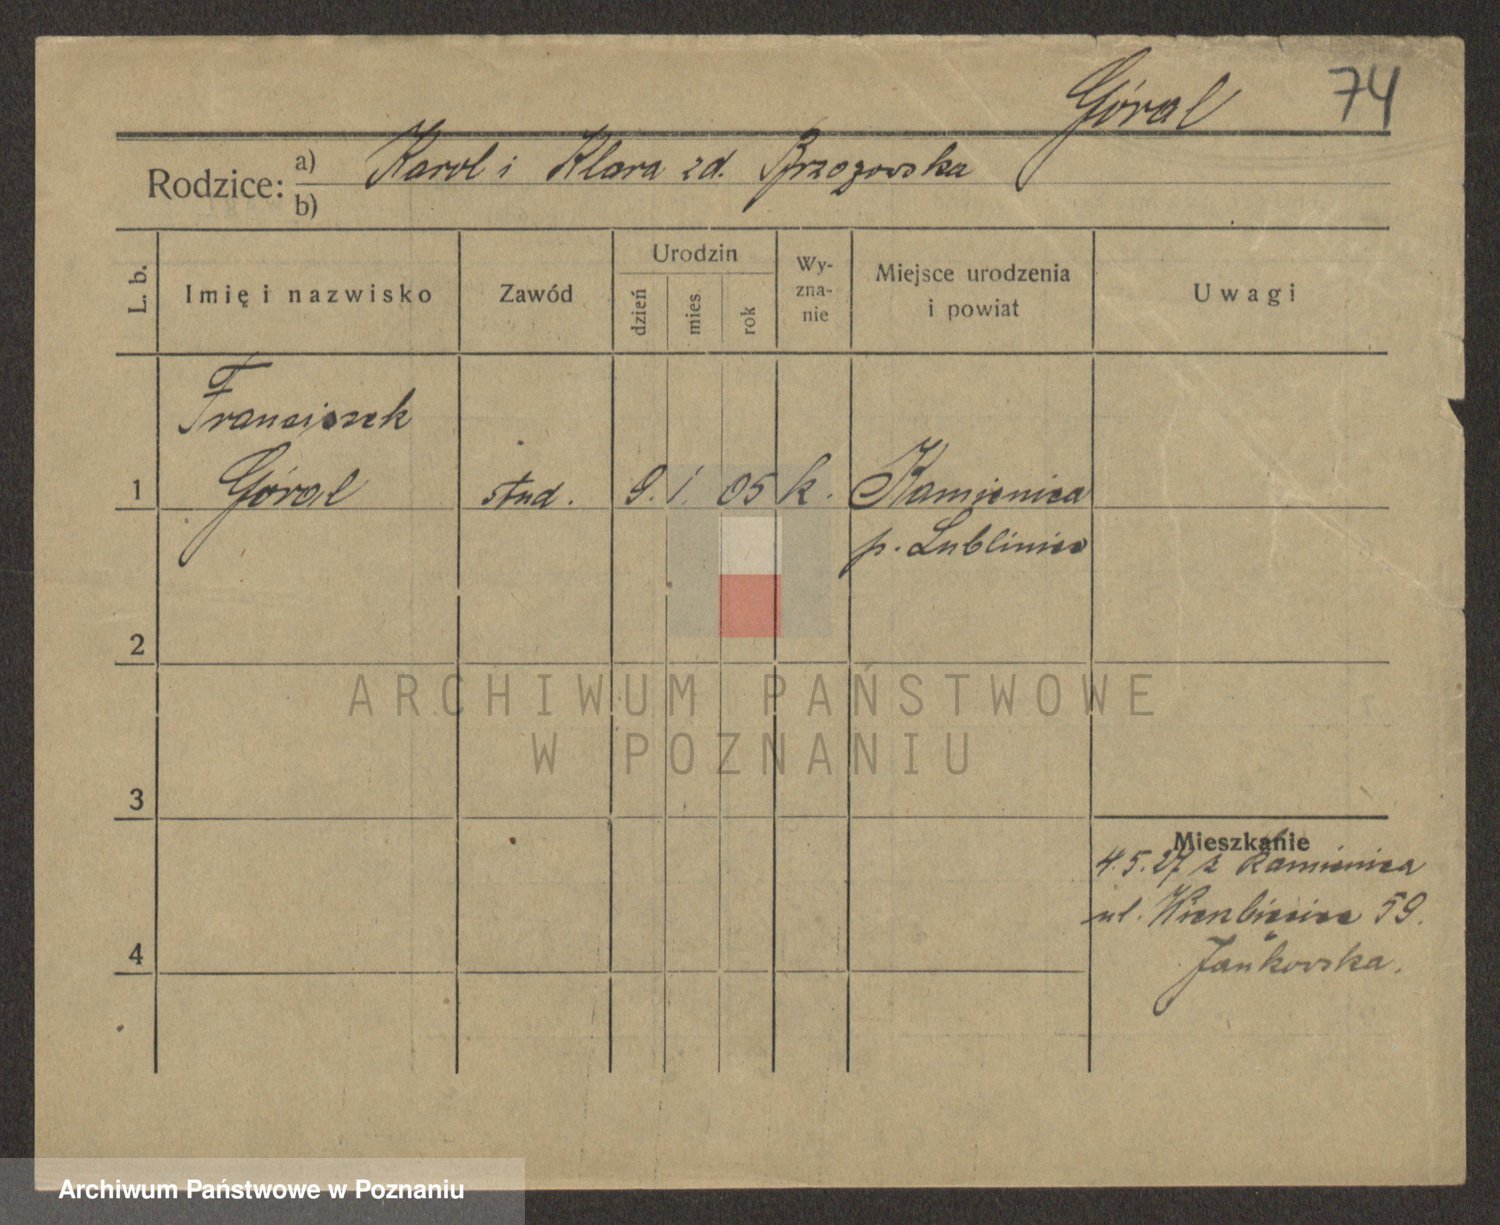 Góral 74
Rodzice: a) Karol i Klara zd. Brzozowska
b)
L. b. Imię i nazwisko Zawód Urodzin dzień mies rok Wy-zna-nie Miejsce urodzenia i powiat Uwagi
Franciszek
1 Góral stud. 9. 1. 05 k. Kamienica
p. Lubliniec
2
ARCHIWUM PAŃSTWOWE
W POZNANIU
3
Mieszkanie
4.5.27 z Kamienica
ul. 59.
4 Jankowska.
Archiwum Państwowe w Poznaniu